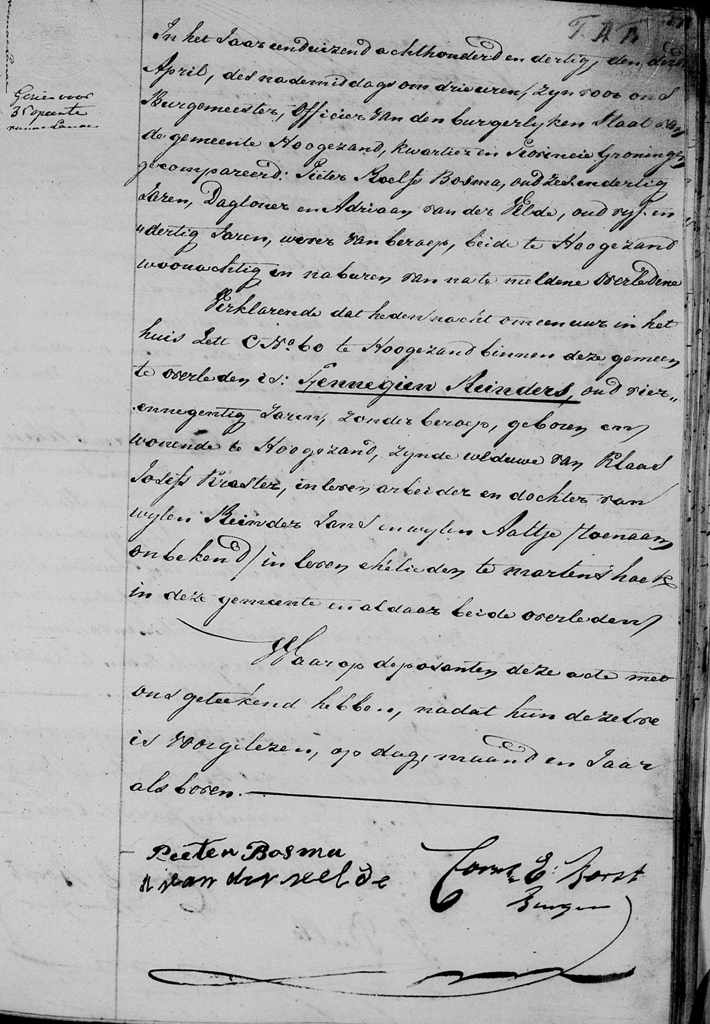 Gezien voor
In het Jaar eenduizend achthonderd en dertig, den
April, des nademiddags om drie uren, zyn voor ons
Burgemeester, Officier van den burgerlyken Staat van
de gemeente Hoogezand, kwartier en Provincie Groningen,
gecompareerd: Pieter Roelfs Bosma, oud zes en dertig
Jaren, Dagloner en Adriaan van der Velde, oud vyf en
dertig Jaren, wever van beroep, beide te Hoogezand
woonachtig en naburen van na te meldene overledene
Verklarende dat heden nacht om een uur in het
huis Lett C No. 60 te Hoogezand binnen deze gemeen
te overleden is: Fennegien Reinders, oud vier
ennegentig Jaren, zonder beroep, geboren en
wonende te Hoogezand, zynde weduwe van Klaas
in leven arbeider en dochter van
wylen Reinder Jans en wylen Aaltje /toenaam
onbekend/ in leven ehelieden te Martenshoek
in deze gemeente en aldaar beide overleden
Waarop deposanten deze acte met
ons geteekend hebben, nadat hun dezelve
is voorgelezen, op dag, maand en Jaar
als boven.
Peeter Bosma
A van der velde
E. Borst